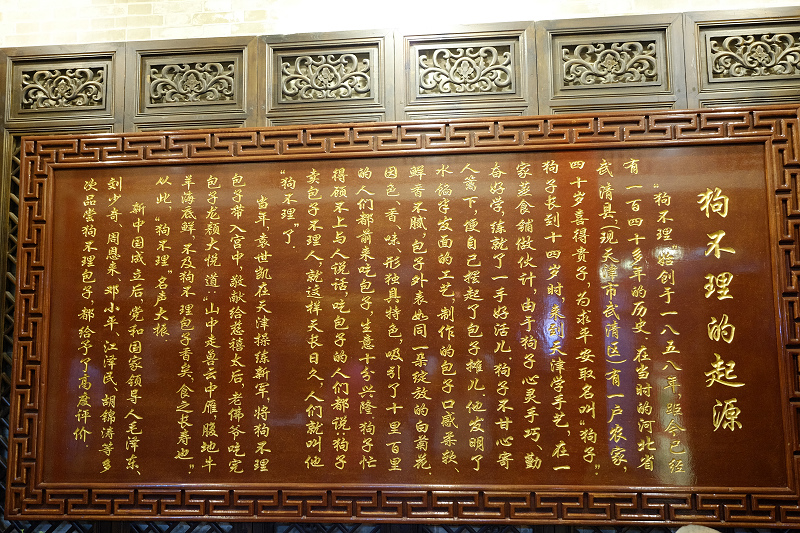 狗不理的起源
"狗不理"始创于一八五八年，距今已经
有一百四十多年的历史，在当时的河北省
武清县，(现天津市武清区)有一户农家，
四十岁喜得贵子，为求平安取名叫"狗子"。
狗子长到十四岁时，来到天津学手艺，在一
家蒸食铺做伙计，由于狗子心灵手巧、勤
奋好学，练就了一手好活儿，狗子不甘心寄
人篱下，便自己摆起了包子摊儿，他发明了
水馅半发面的工艺，制作的包子口感柔软、
鲜香不腻，包子外表如同一朵绽放的白菊花，
因色、香、味、形独具特色，吸引了十里百里
的人们都前来吃包子，生意十分兴隆，狗子忙
得顾不上与人说话，吃包子的人们都说，狗子
卖包子不理人，就这样天长日久，人们就叫他
"狗不理"了。
当年，袁世凯在天津操练新军，将狗不理
包子带入宫中，敬献给慈禧太后，老佛爷吃完
包子龙颜大悦，道"山中走兽云中雁，腹地牛
羊海底鲜，不及狗不理包子香矣，食之长寿也。"
从此，"狗不理"名声大振
新中国成立后，党和国家领导人毛泽东、
刘少奇、周恩来、邓小平、江泽民、胡锦涛等多
次品尝狗不理包子，都给予了高度评价。